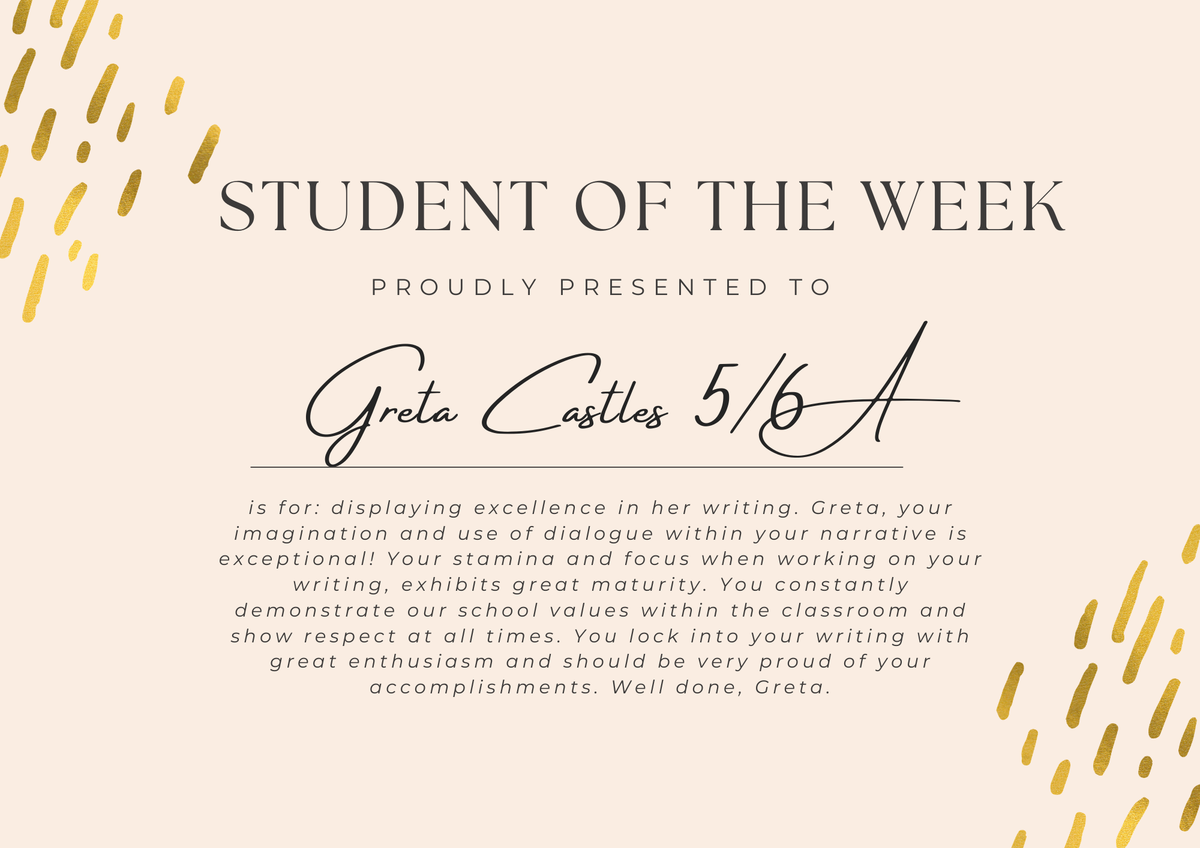 STUDENT OF THE WEEK
PROUDLY PRESENTED TO
Greta Castles 5/6A
is for: displaying excellence in her writing. Greta, your
imagination and use of dialogue within your narrative is
exceptional! Your stamina and focus when working on your
writing, exhibits great maturity. You constantly
demonstrate our school values within the classroom and
show respect at all times. You lock into your writing with
great enthusiasm and should be very proud of your
accomplishments. Well done, Greta.